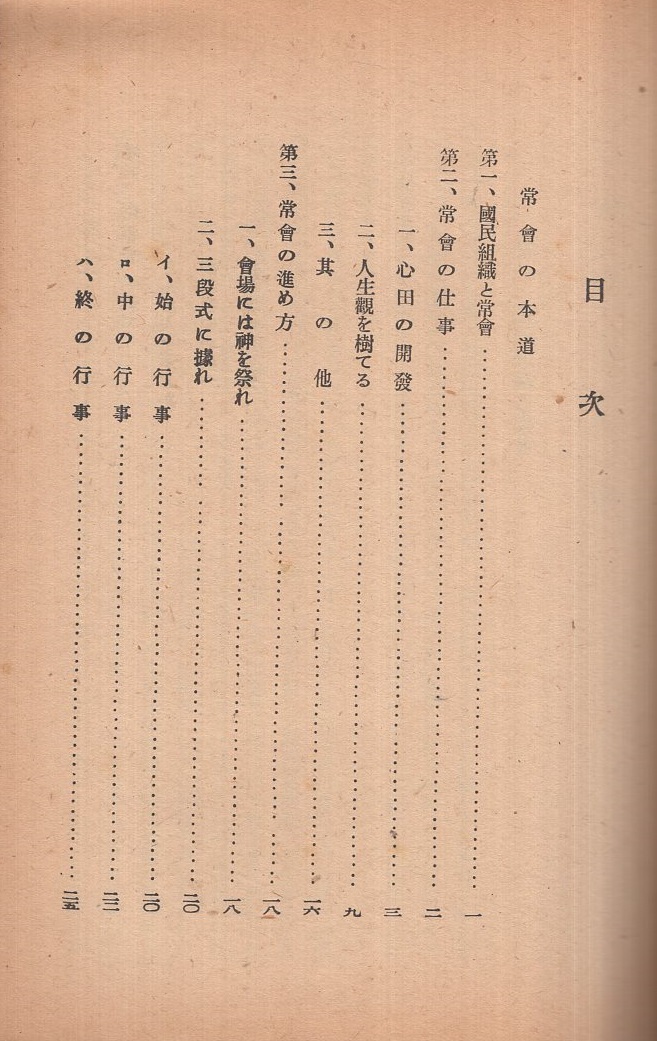 目次
常會の本道
第一、國民組織と常會……一
第二、常會の仕事……二
一、心田の開發……三
二、人生觀を樹てる……九
三、其の他……一六
第三、常會の進め方……一八
一、會場には神を祭れ……一八
二、三段式に據れ……二〇
イ、始の行事……二〇
ロ、中の行事……二二
ハ、終の行事……二五